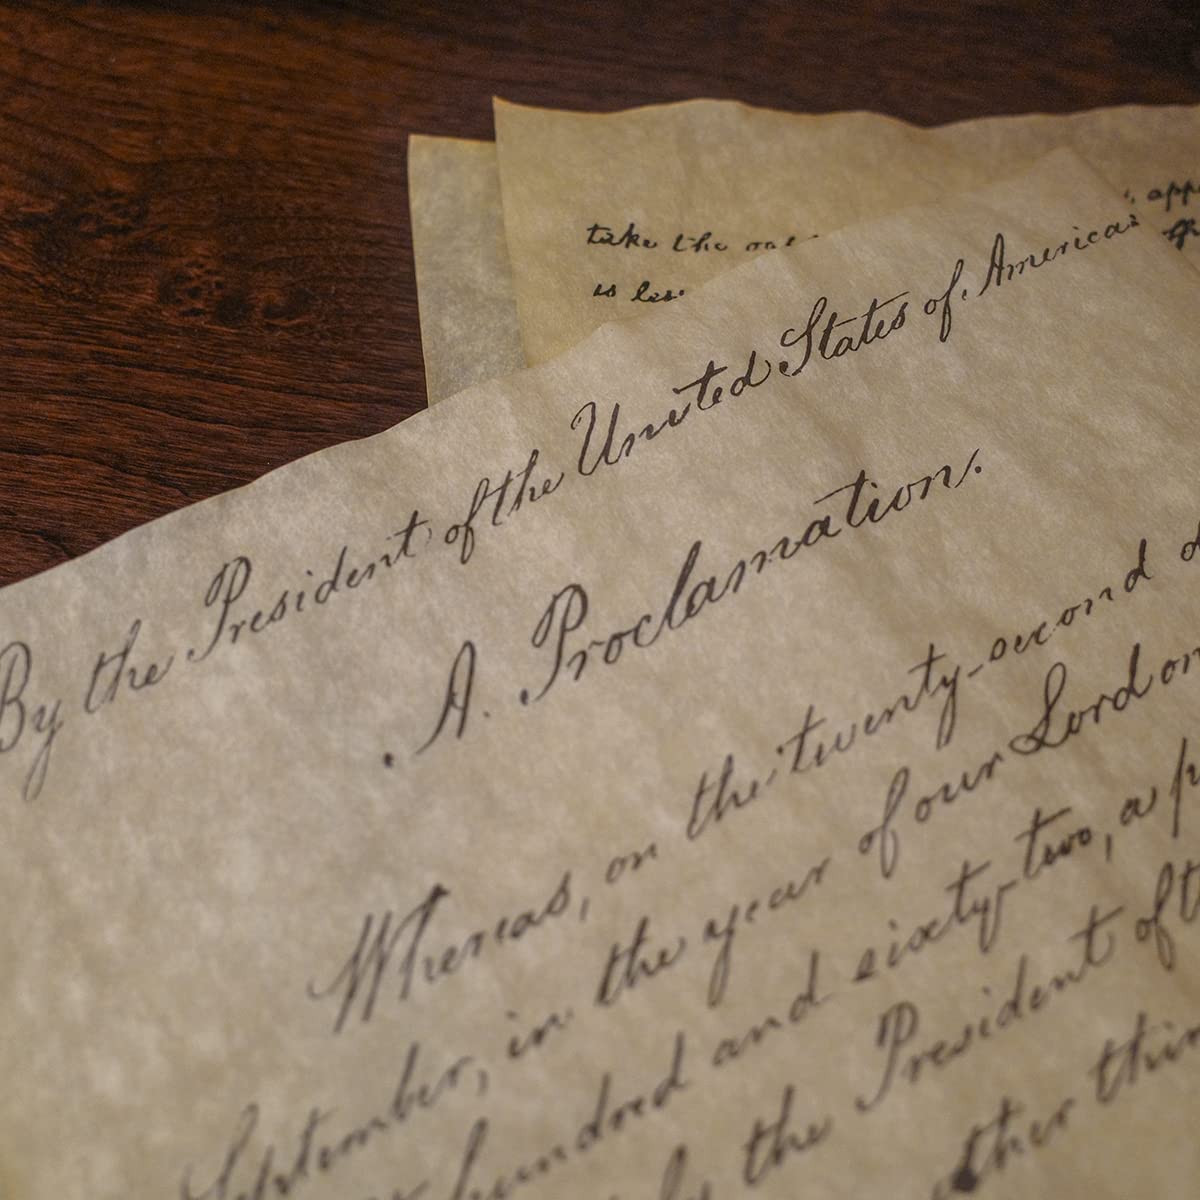 take the
is
By the President of the United States of America:
A. Proclamation.
Whereas, on the twenty-second
September, in the year of our Lord
hundred and sixty-two, a
the President of
other